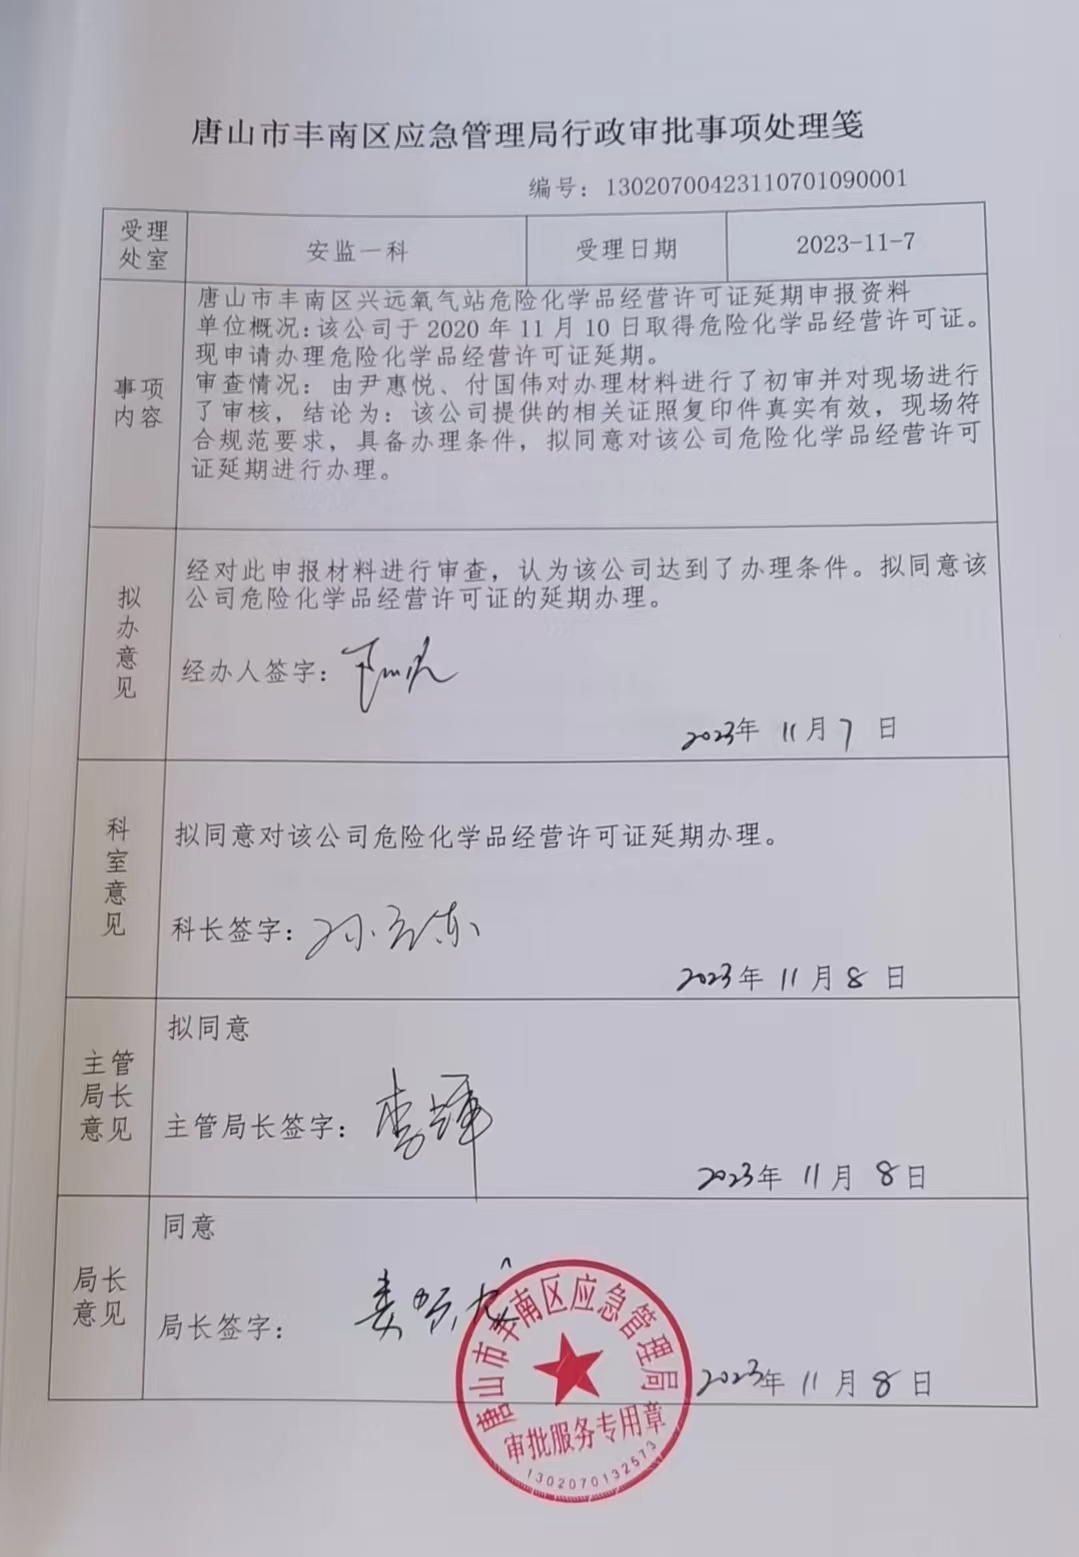 唐山市丰南区应急管理局行政审批事项处理笺
编号：13020700423110701090001
受理处室
安监一科
受理日期
2023-11-7
事项内容
唐山市丰南区兴远氧气站危险化学品经营许可证延期申报资料
单位概况：该公司于 2020 年 11 月 10 日取得危险化学品经营许可证。
现申请办理危险化学品经营许可证延期。
审查情况：由尹惠悦、付国伟对办理材料进行了初审并对现场进行
了审核，结论为：该公司提供的相关证照复印件真实有效，现场符
合规范要求，具备办理条件，拟同意对该公司危险化学品经营许可
证延期进行办理。
拟办意见
经对此申报材料进行审查，认为该公司达到了办理条件。拟同意该
公司危险化学品经营许可证的延期办理。
经办人签字：
2023年 11月 7 日
科室意见
拟同意对该公司危险化学品经营许可证延期办理。
科长签字：
2023年 11月 8 日
主管局长意见
拟同意
主管局长签字：李辉
2023年 11月 8日
局长意见
同意
局长签字：
2023年 11月 8日
唐山市丰南区应急管理局
审批服务专用章
1302070132573